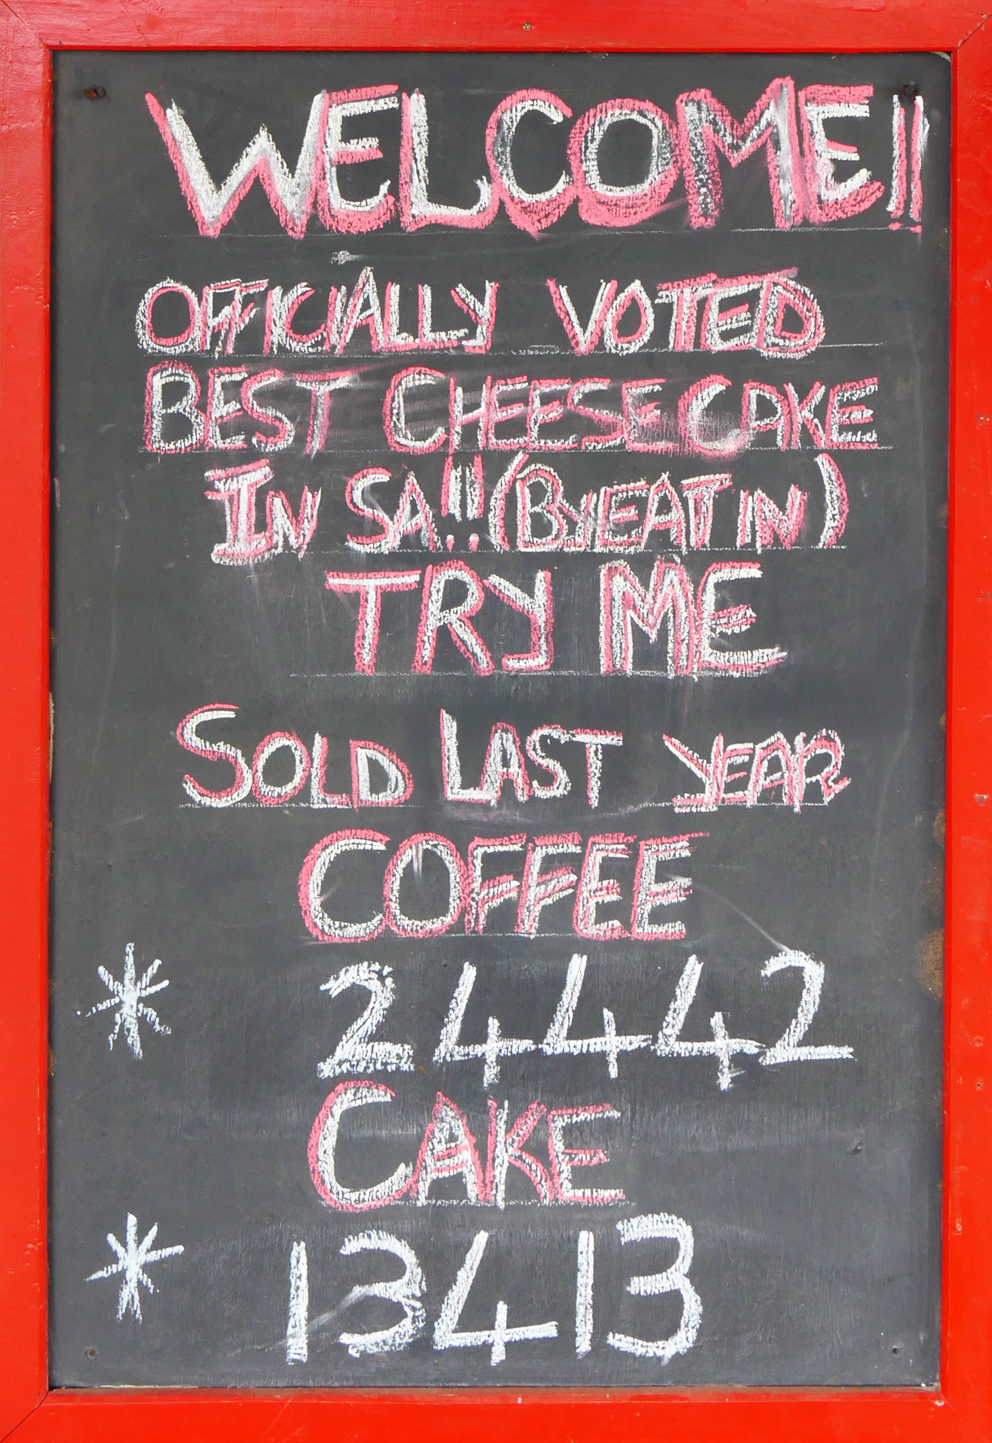 WELCOME!!
OFFICIALLY VOTED
BEST CHEESECAKE
IN SA!! (BY EAT IN)
TRY ME
SOLD LAST YEAR
COFFEE
* 24442
CAKE
* 13413